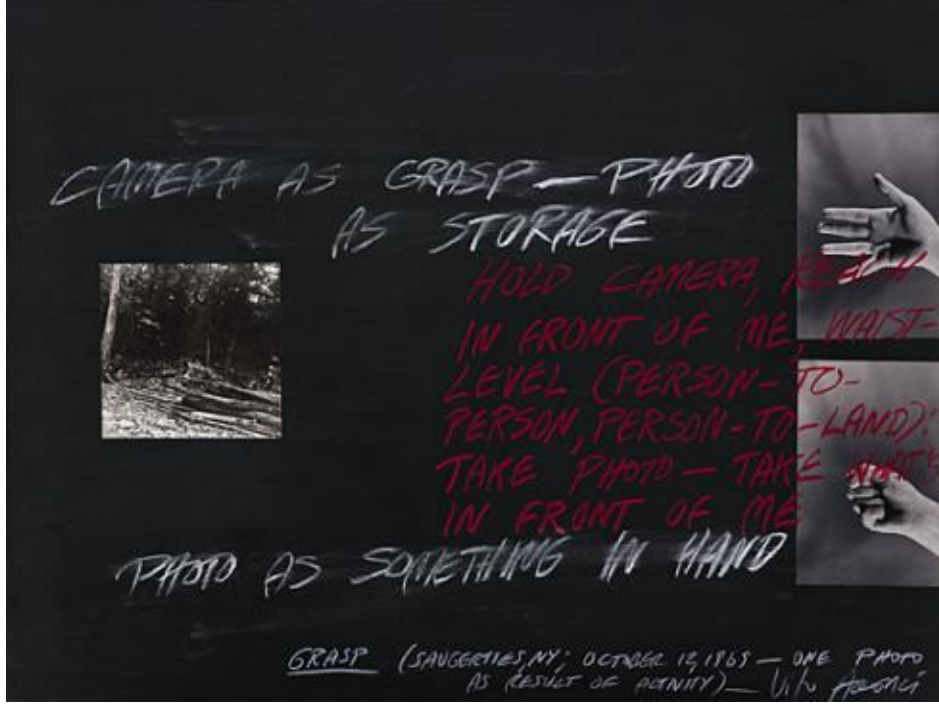 CAMERA AS GRASP — PHOTO
AS STORAGE
HOLD CAMERA, REACH
IN FRONT OF ME, WAIST-
LEVEL (PERSON-TO-
PERSON, PERSON-TO-LAND):
TAKE PHOTO — TAKE WHAT'S
IN FRONT OF ME
PHOTO AS SOMETHING IN HAND
GRASP (SAUGERTIES, NY; OCTOBER 12, 1969 — ONE PHOTO
AS RESULT OF ACTIVITY) — Vito Acconci